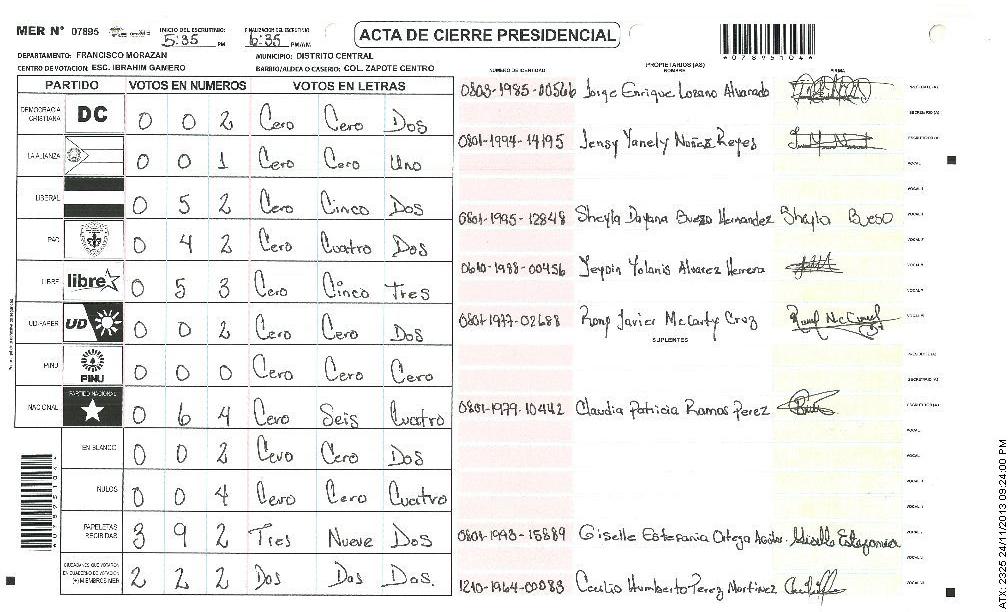 MER Nº 07895 INICIO DEL ESCRUTINIO: 5:35 PM FINALIZACION DEL ESCRUTINIO: 6:35 PM/AM ACTA DE CIERRE PRESIDENCIAL
*07895104*
DEPARTAMENTO: FRANCISCO MORAZAN MUNICIPIO: DISTRITO CENTRAL
CENTRO DE VOTACION: ESC. IBRAHIN GAMERO BARRIO/ALDEA O CASERIO: COL. ZAPOTE CENTRO
PARTIDO VOTOS EN NUMEROS VOTOS EN LETRAS
DEMOCRACIA CRISTIANA DC 0 0 2 Cero Cero Dos
LA ALIANZA 0 0 1 Cero Cero Uno
LIBERAL 0 5 2 Cero Cinco Dos
PAC 0 4 2 Cero Cuatro Dos
LIBRE libre 0 5 3 Cero Cinco Tres
UD-FAPER UD 0 0 2 Cero Cero Dos
PINU PINU 0 0 0 Cero Cero Cero
NACIONAL PARTIDO NACIONAL 0 6 4 Cero Seis Cuatro
EN BLANCO 0 0 2 Cero Cero Dos
NULOS 0 0 4 Cero Cero Cuatro
PAPELETAS RECIBIDAS 3 9 2 Tres Nueve Dos
CIUDADANOS QUE VOTARON EN CUADERNO DE VOTACION (+) MIEMBROS MER 2 2 2 Dos Dos Dos.
NUMERO DE IDENTIDAD PROPIETARIOS (AS) NOMBRE FIRMA
0803-1985-00566 Jorge Enrique Lozano Alvarado
0801-1994-14195 Jensy Yanely Nuñez Reyes
0801-1995-12848 Sheyla Dayana Bueso Hernandez Sheyla Bueso
0610-1988-00456 Jeysin Yolanis Alvarez Herrera
0801-1977-02688 Rony Javier McCarty Cruz
SUPLENTES
0801-1979-10442 Claudia Patricia Ramos Perez
0801-1993-15889 Giselle Estefania Ortega Giselle Estefania
1210-1964-00083 Cecilio Humberto Perez Martinez
ATX-2325 24/11/2013 09:24:00 PM